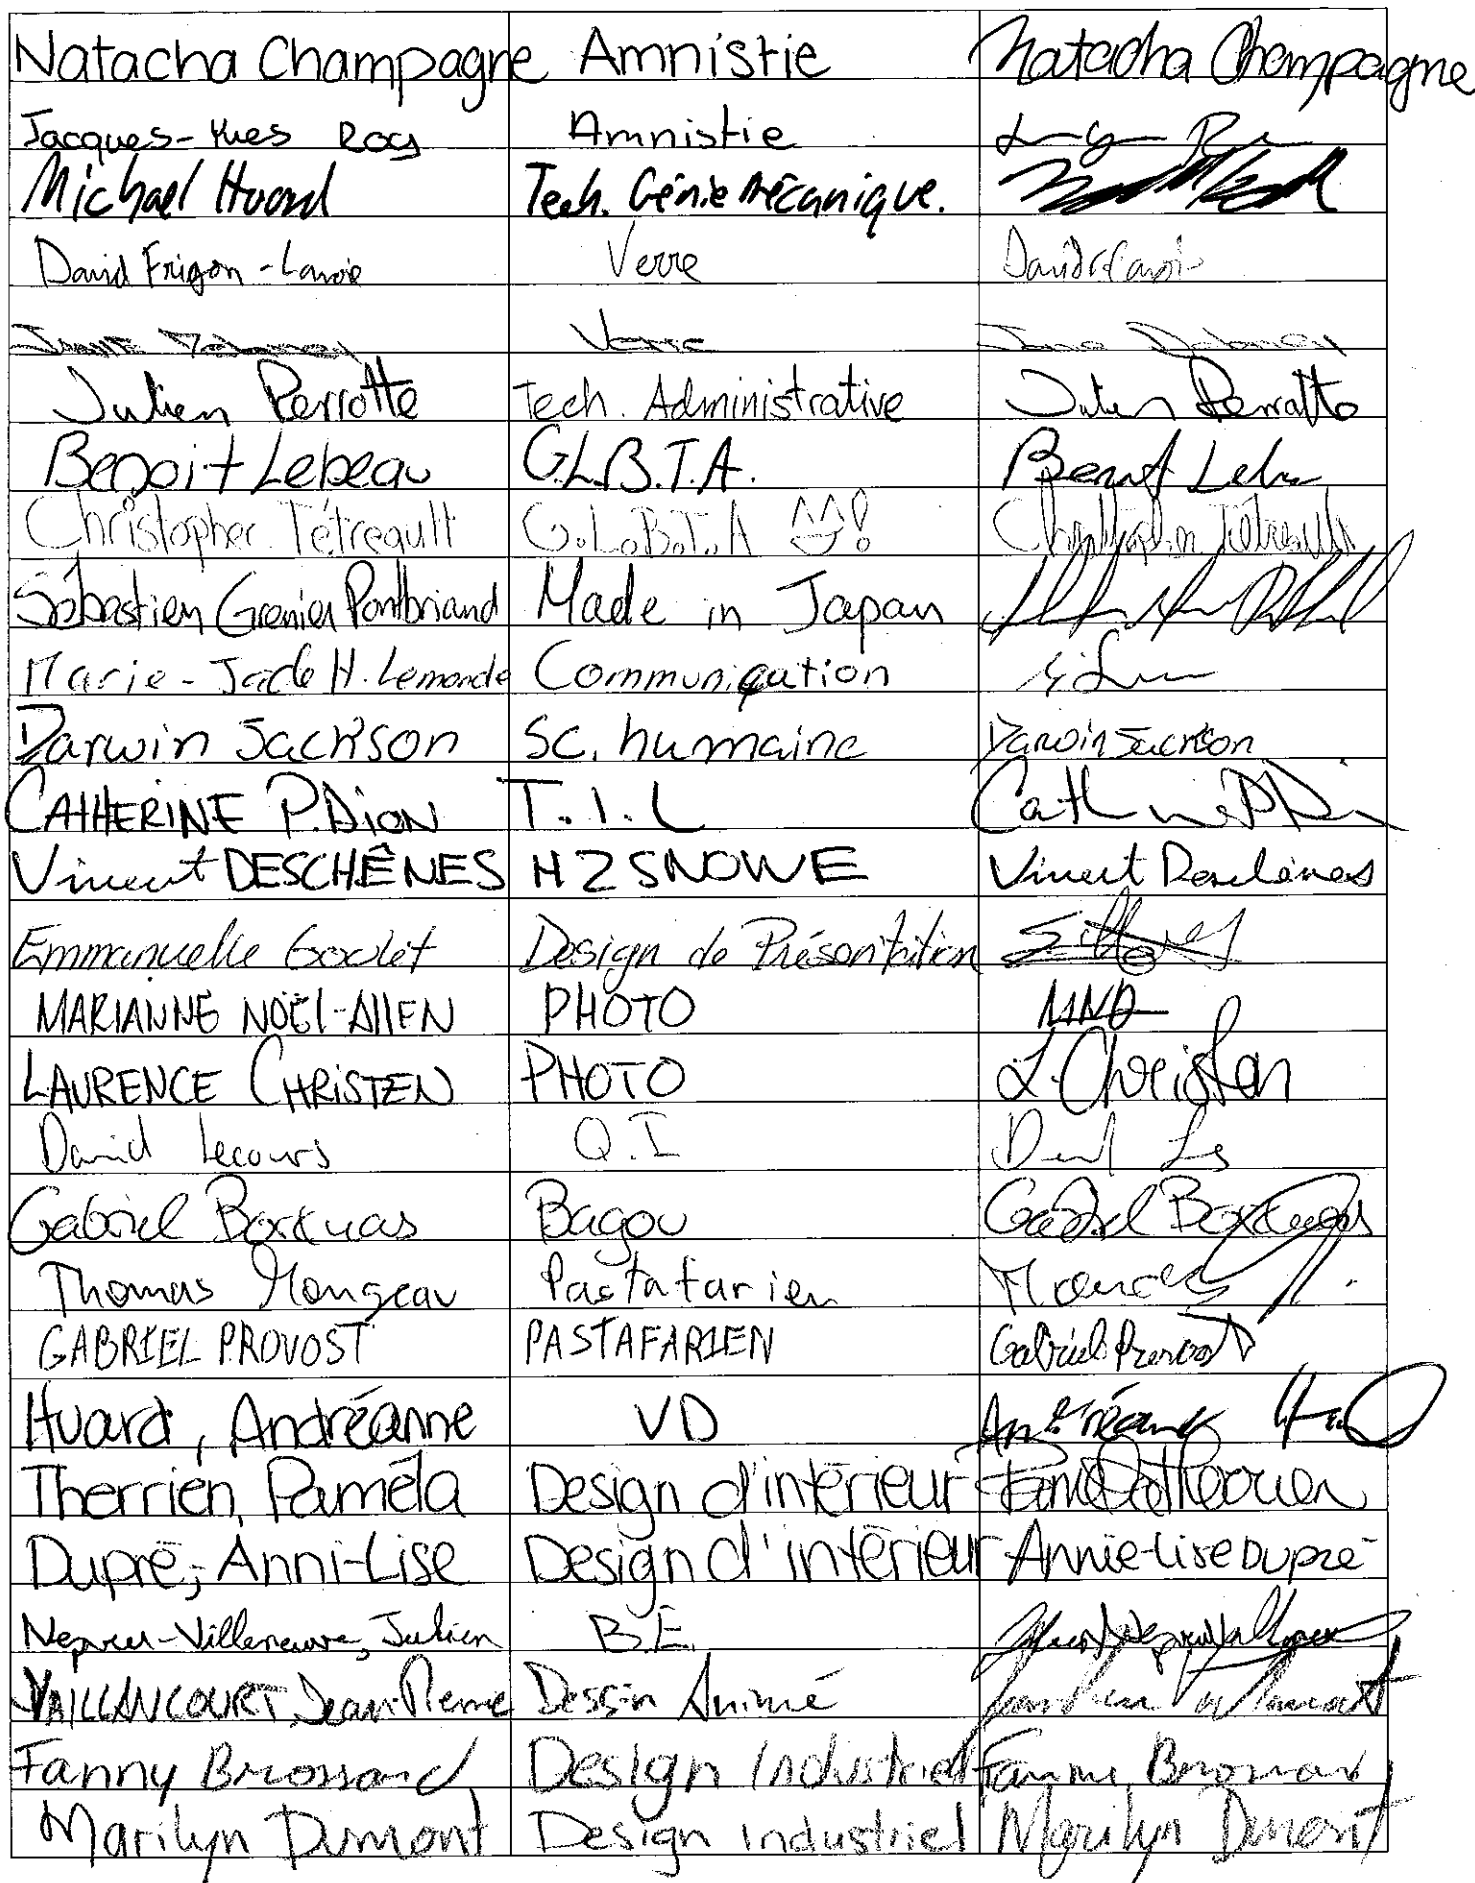 Natacha Champagne Amnistie Natacha Champagne
Jacques-Yves Roy Amnistie
Michael Huard Tech. Génie Mécanique.
David Frigon-Lavoie Verre David Lavoie
Verre
Julien Perrotte Tech. Administrative Julien Perrotte
Benoit Lebeau G.L.B.T.A. Benoit Lebeau
Christopher Tétreault G.L.B.T.A ^^! Christopher Tétreault
Sébastien Grenier Pontbriand Made in Japan
Marie-Jade H. Lemonde Communication
Darwin Jackson Sc. humaine Darwin Jackson
CATHERINE P.DION T.I.L Catherine P Dion
Vincent DESCHÊNES H2SNOWE Vincent Deschênes
Emmanuelle Godet Design de Présentation
MARIANNE NOËL-AllEN PHOTO MNA
LAURENCE CHRISTEN PHOTO L. Christen
David Lecours Q.I
Gabriel Borduas Bagou Gabriel Borduas
Thomas Mongeau Pastafarien
GABRIEL PROVOST PASTAFARIEN Gabriel Provost
Huard, Andréanne VD Andréanne
Therrien, Paméla Design d'intérieur Paméla Therrien
Dupré, Anni-Lise Design d'intérieur Annie-Lise Dupré
Nepveu-Villeneuve, Julien B.E.
VAILLANCOURT Jean-Pierre Dessin Animé
Fanny Brossard Design Industriel Fanny Brossard
Marilyn Dumont Design industriel Marilyn Dumont